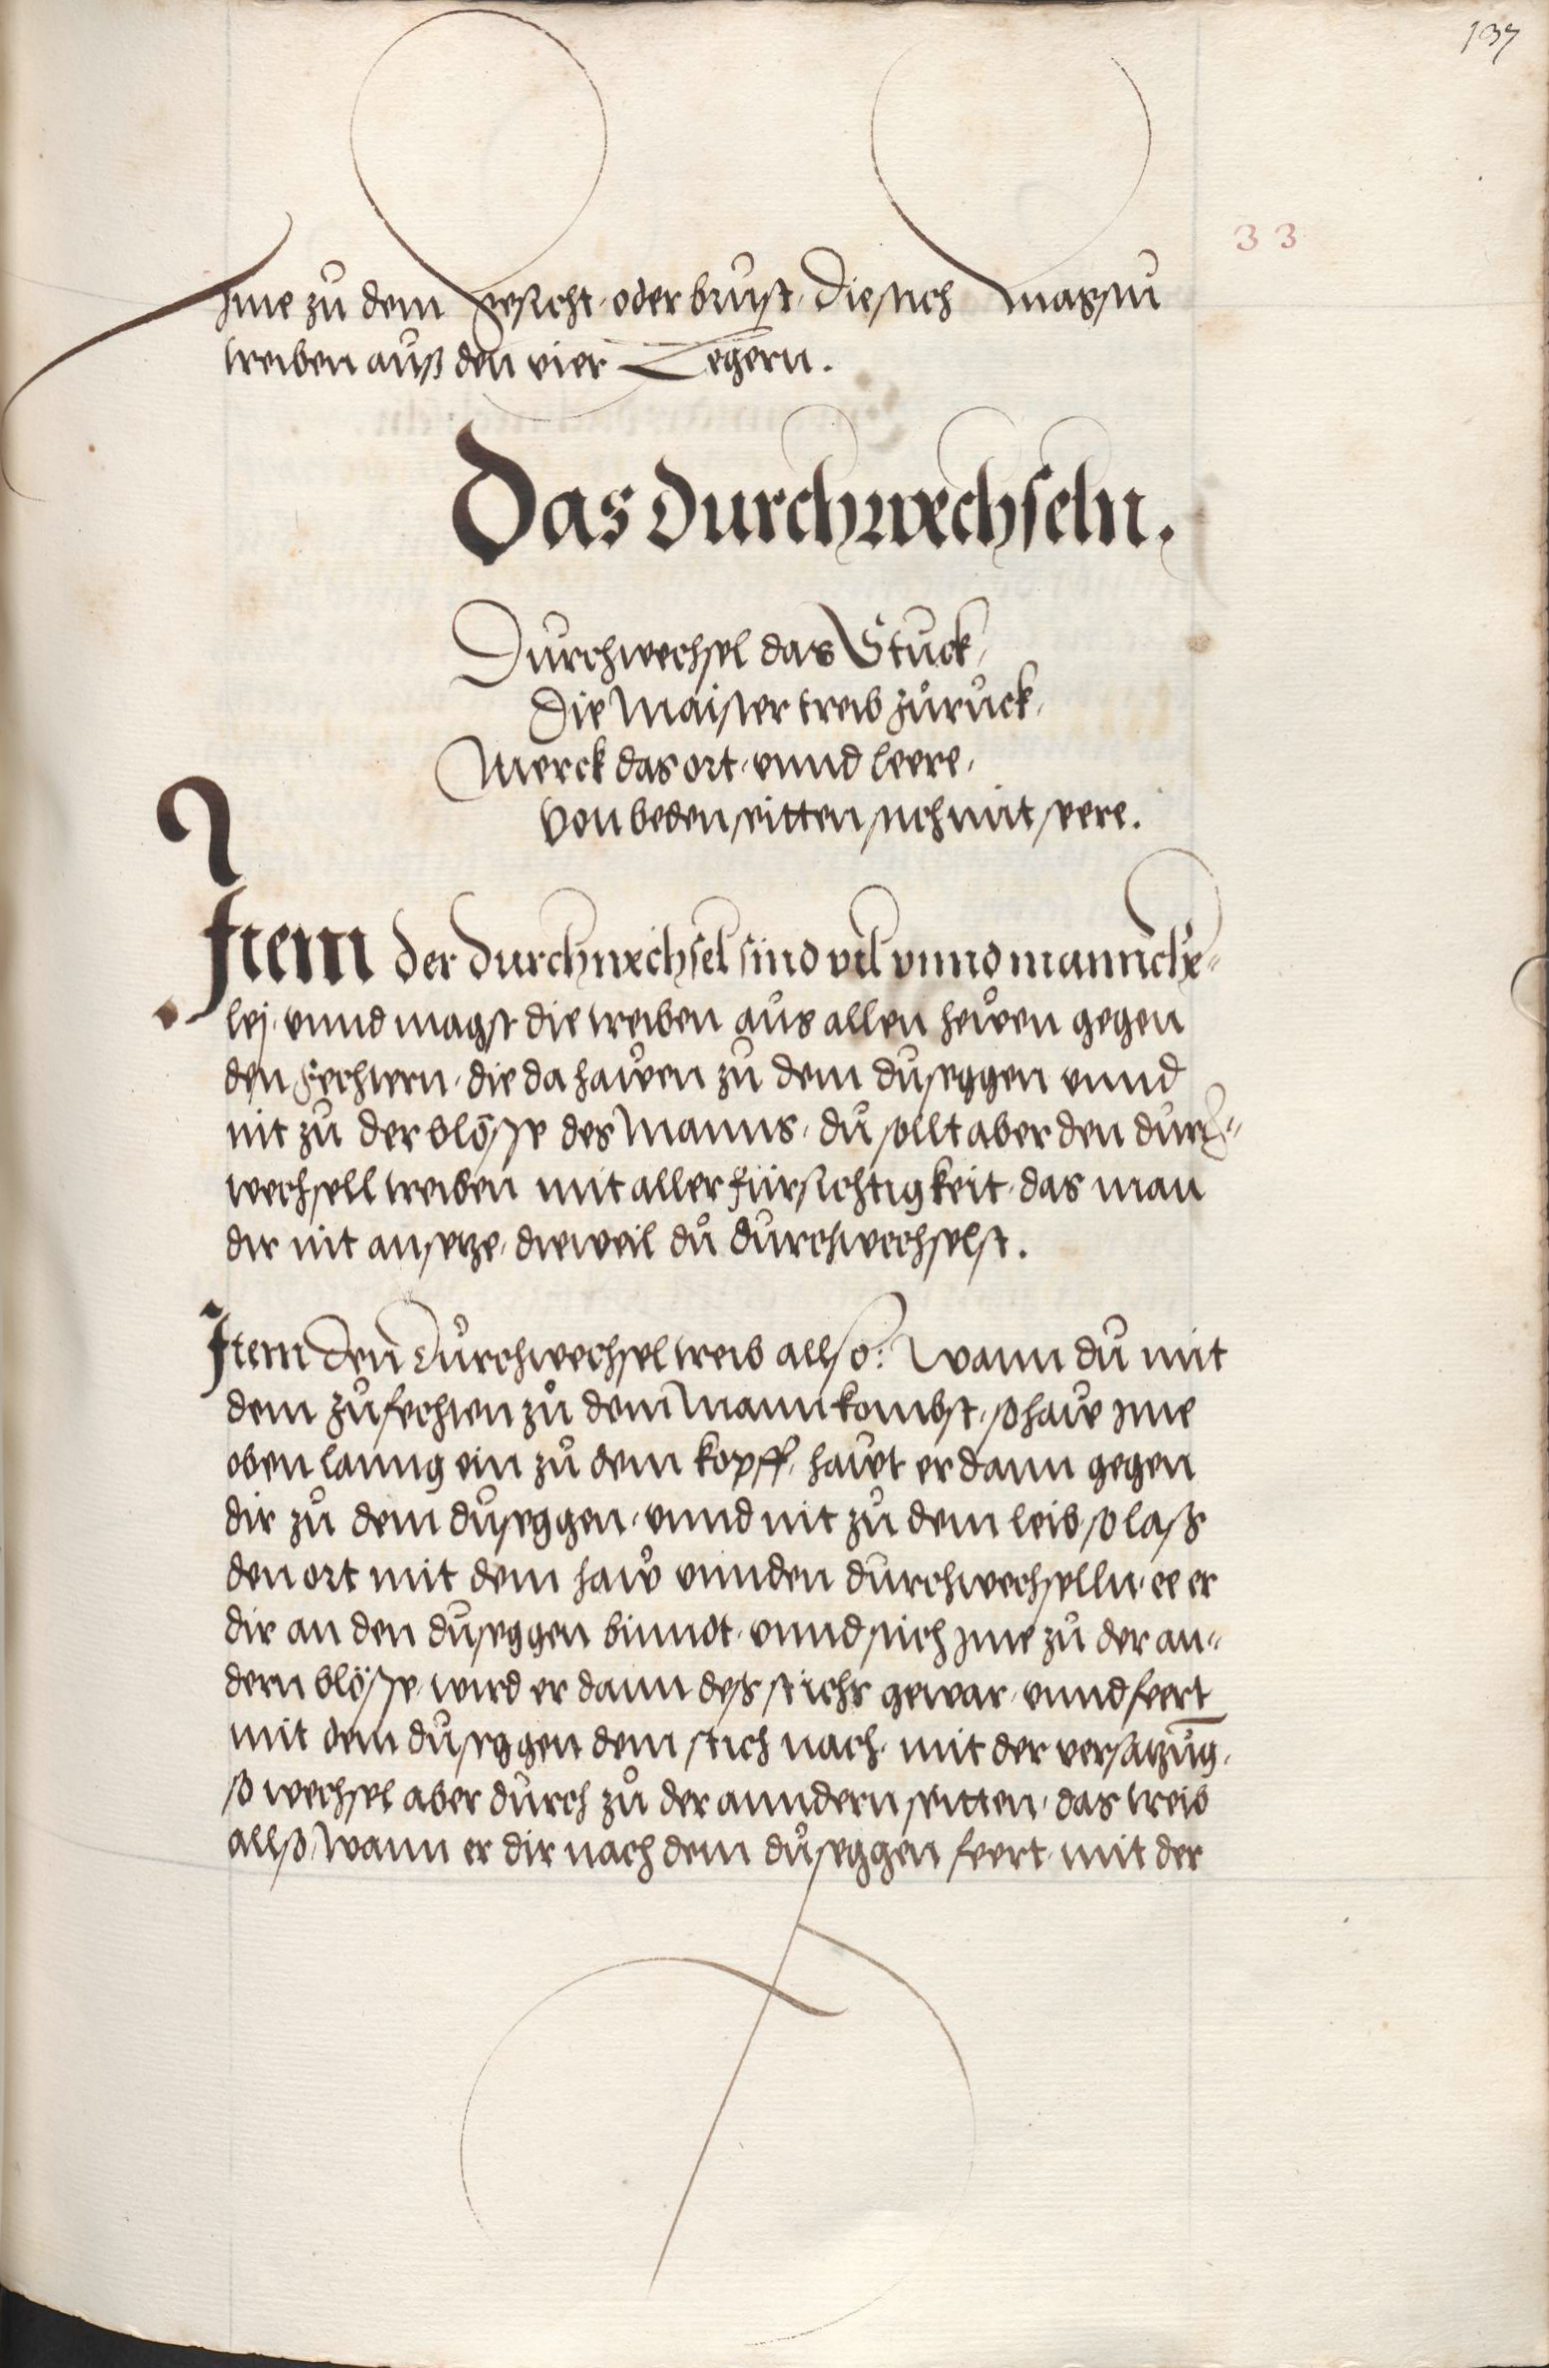 137
33
Jme zů dem gesicht, oder brust, die stich magstu
treiben auß den vier Legern.
Das Durchwechseln.
Durchwechsel das Stuck,
Die Maister treib zůrůck,
Merck das ort, vnnd leere,
Von beden seitten stich mit sere.
Jtem der durchwechsel sind vil vnnd mannicher-
lej, vnnd magst die treiben aůs allen hewen gegen
den Fechtern, die da hawen zů dem důseggen vnnd
nit zů der blösse des Manns, dů sollt aber den durch-
wechsell treiben mit aller fürsichtigkeit, das man
dir nit ansetze, dieweil dů důrchwechselst.
Jtem den Důrchwechsel treib allso: Wann dů mit
dem zůfechten zů dem Mann kombst, so haw jme
oben lanng ein zů dem kopff, hawt er dann gegen
dir zů dem důseggen, vnnd nit zů dem leib, so laß
den ort mit dem haw vnnden důrchwechselln, ee er
dir an den důseggen binndt, vnnd stich jme zů der an-
dern blösse, wird er dann deß stichs gewar, vnnd feert
mit dem důseggen dem stich nach, mit der versatzůg,
so wechsel aber důrch zů der anndern seitten, das treib
allso, Wann er dir nach dem důseggen feert, mit der